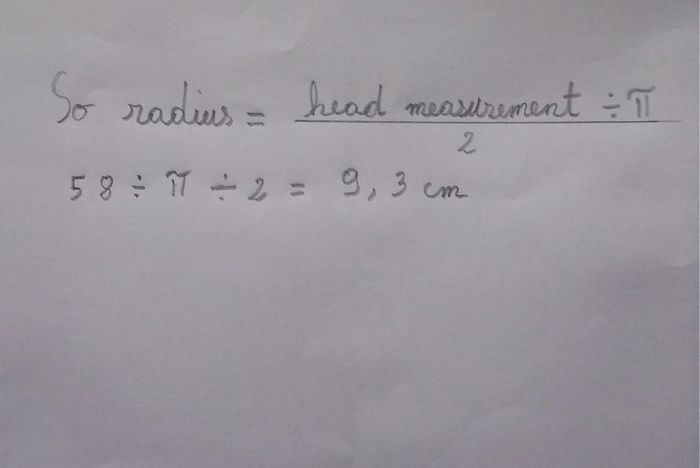 So radius = head measurement ÷ π
2
58 ÷ π ÷ 2 = 9,3 cm